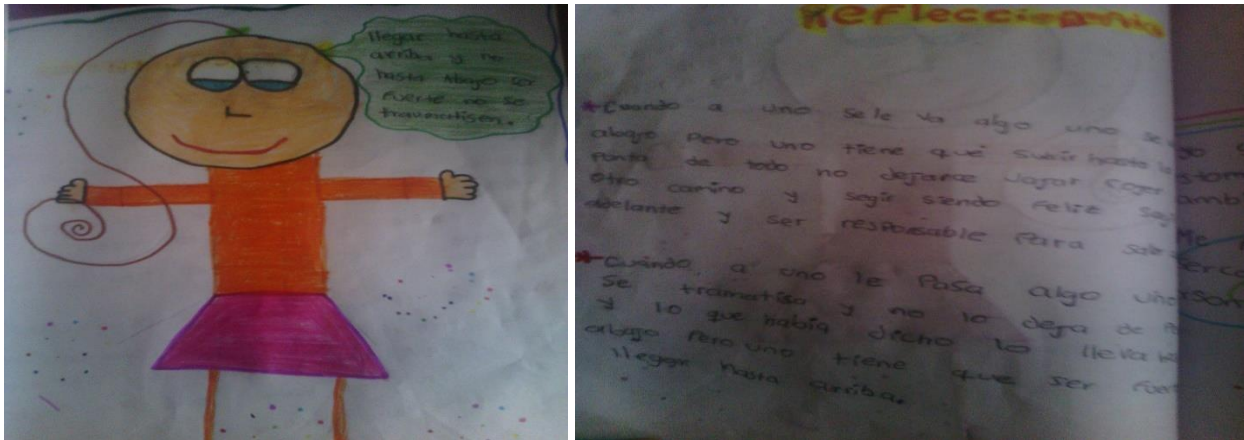 llegar hasta
arriba y no
hasta abajo ser
fuerte no se
traumatisen.
Reflecciomento
*Cuando a uno se le va algo uno se
abajo pero uno tiene que subir hasta la
punta de todo no dejarce vajar coger
otro camino y segir siendo feliz
adelante y ser responsable para
*Cuando a uno le pasa algo uno
se tramatisa y no lo deja de
y lo que había dicho lo lleva
abajo pero uno tiene que ser
llegar hasta arriba.